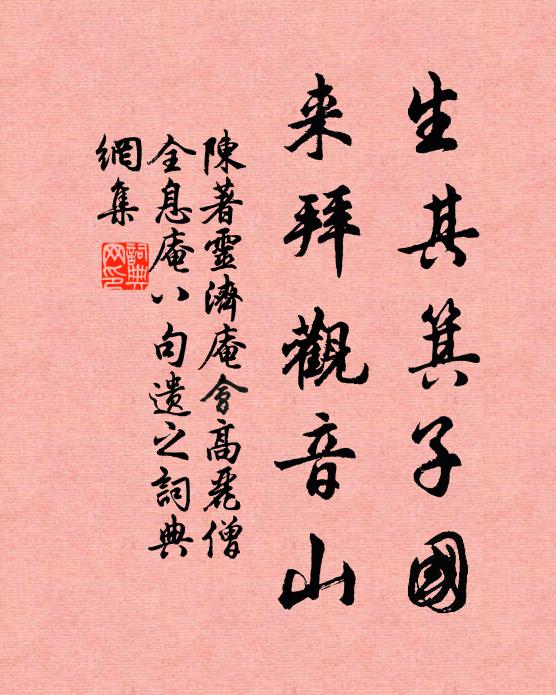 生其箕子國
来拜觀音山
陳著靈濟庵會高麗僧
全息庵八句遺之詞典
網集
詞典網印